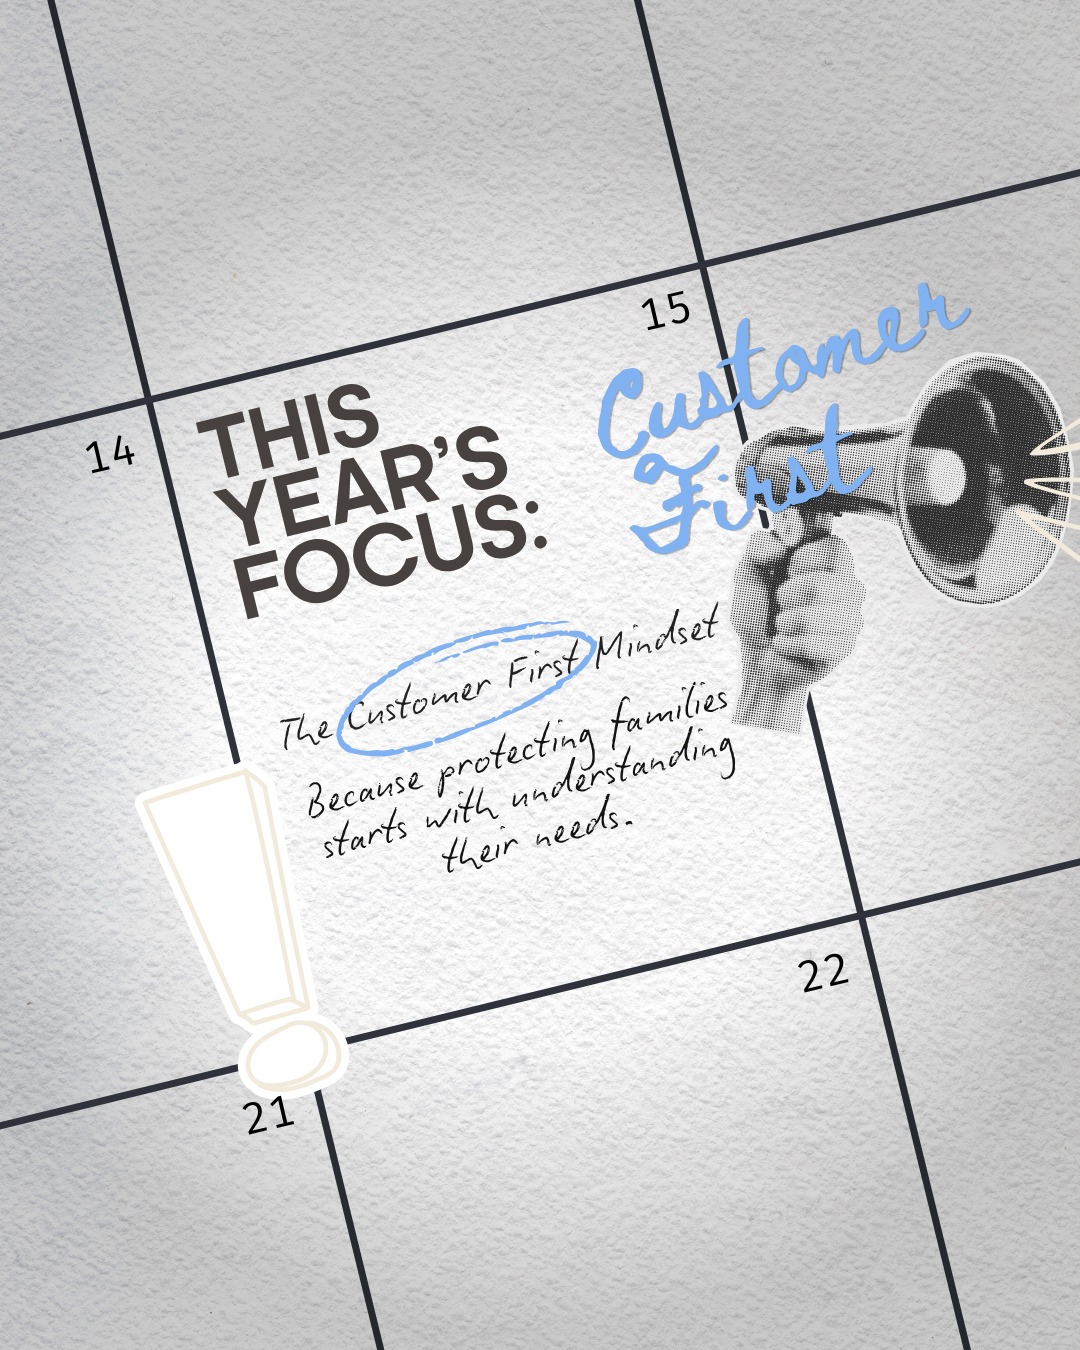 15
14
THIS
YEAR'S
FOCUS:
Customer
First
The Customer First Mindset
Because protecting families
starts with understanding
their needs.
22
21